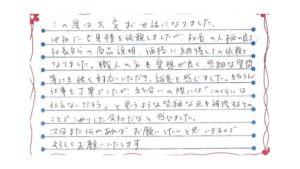 この度は大変お世話になりました。
他社にも見積を依頼しましたが、社長の人柄の良さ
社長からの商品説明、価格に納得しての依頼と
なりました。職人の方も愛想が良く、些細な質問
等にも快く対応いただき、誠意を感じました。もちろん
仕事も丁寧でしたが、立ち会いの際には「このくらいは
伝えないだろう」と思うような些細な点も
ことで しっかりした会社だなと感じました。
次回また何かあれば お願いしたいと思いますので
よろしくお願いいたします